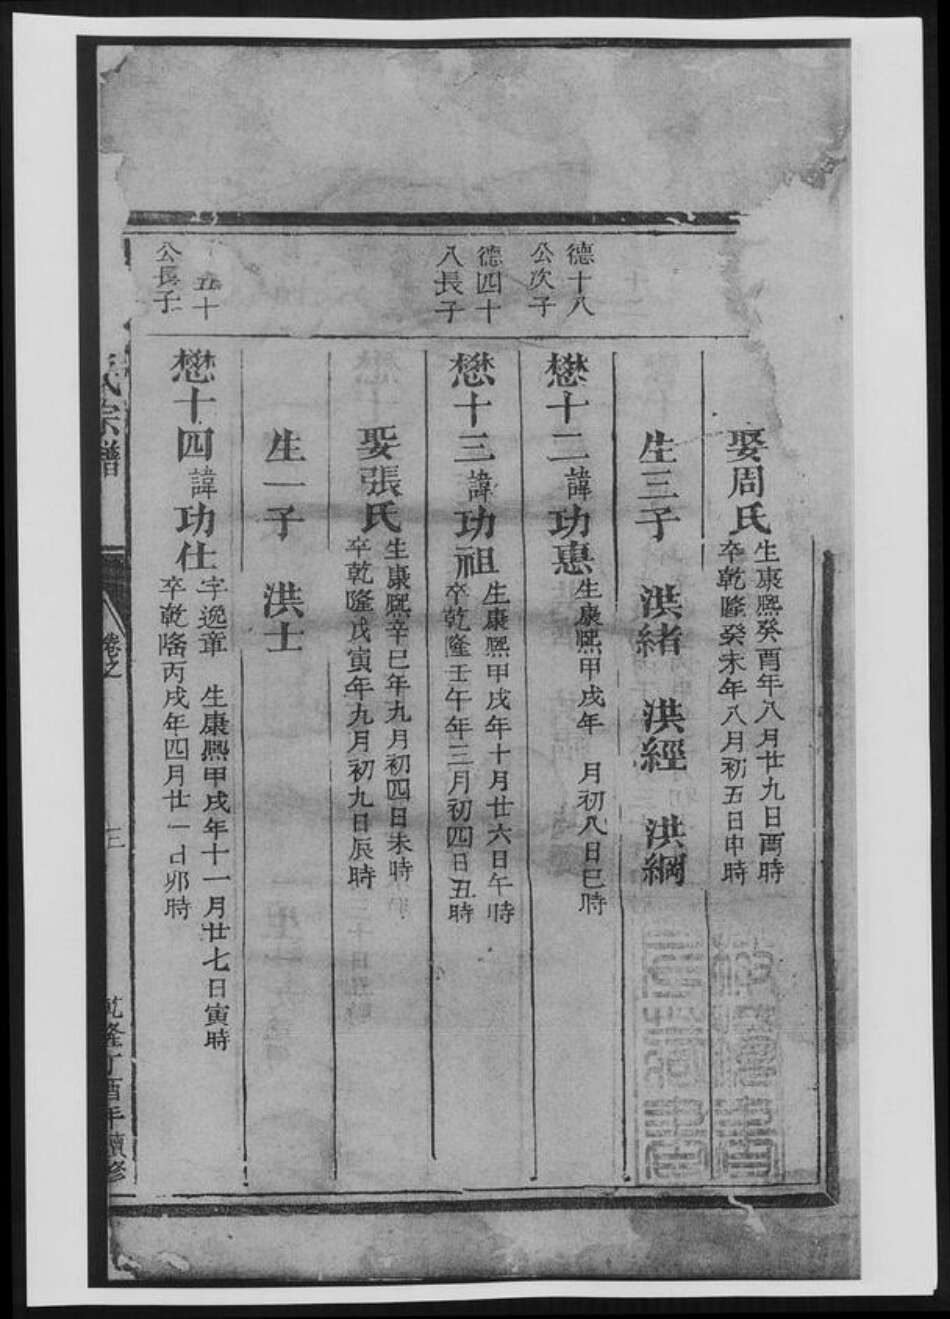 娶周氏
生康熈癸酉年八月廿九日酉時
卒乾隆癸未年八月初五日申時
生三子 洪緒 洪經 洪綱
德十八
公次子
懋十二諱功惠
生康熈甲戌年 月初八日巳時
德四十
八長子
懋十三諱功祖
生康熈甲戌年十月廿六日午時
卒乾隆壬午年三月初四日丑時
娶張氏
生康熈辛巳年九月初四日未時
卒乾隆戊寅年九月初九日辰時
生一子 洪士
五十
公長子
懋十四諱功仕
字逸章 生康熈甲戌年十一月廿七日寅時
卒乾隆丙戌年四月廿一日卯時
氏宗譜
卷之
三
乾隆丁酉年續修